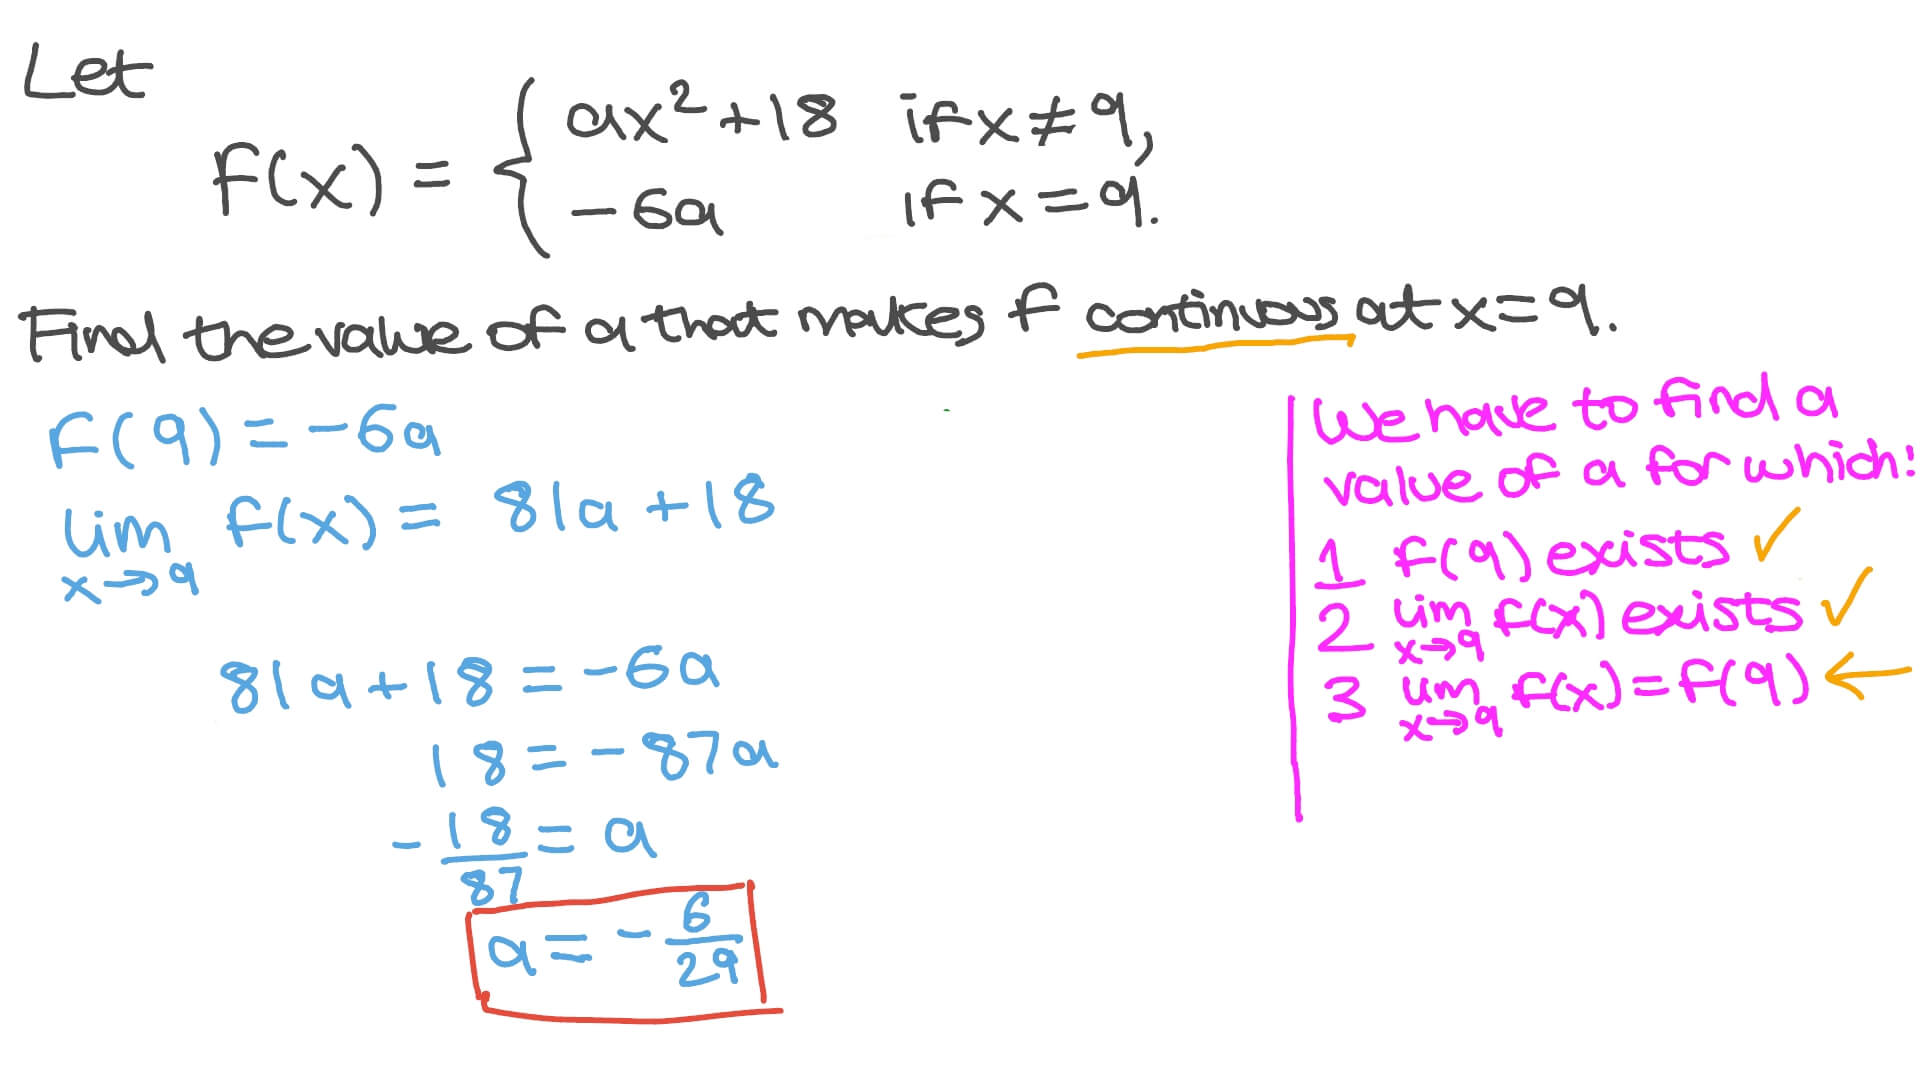 Let
f(x) = { ax² + 18 if x ≠ 9,
-6a if x = 9.
Find the value of a that makes f continuous at x = 9.
f(9) = -6a
lim f(x) = 81a + 18
x→9
81a + 18 = -6a
18 = -87a
-18/87 = a
a = -6/29
We have to find a
value of a for which:
1 f(9) exists ✓
2 lim f(x) exists ✓
x→9
3 lim f(x) = f(9) ←
x→9